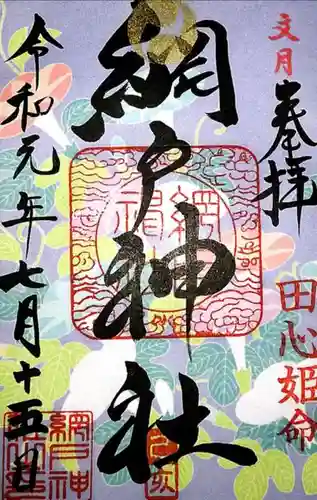 文月
奉拝
田心姫命
網戸神社
令和元年七月十五日
網戸神